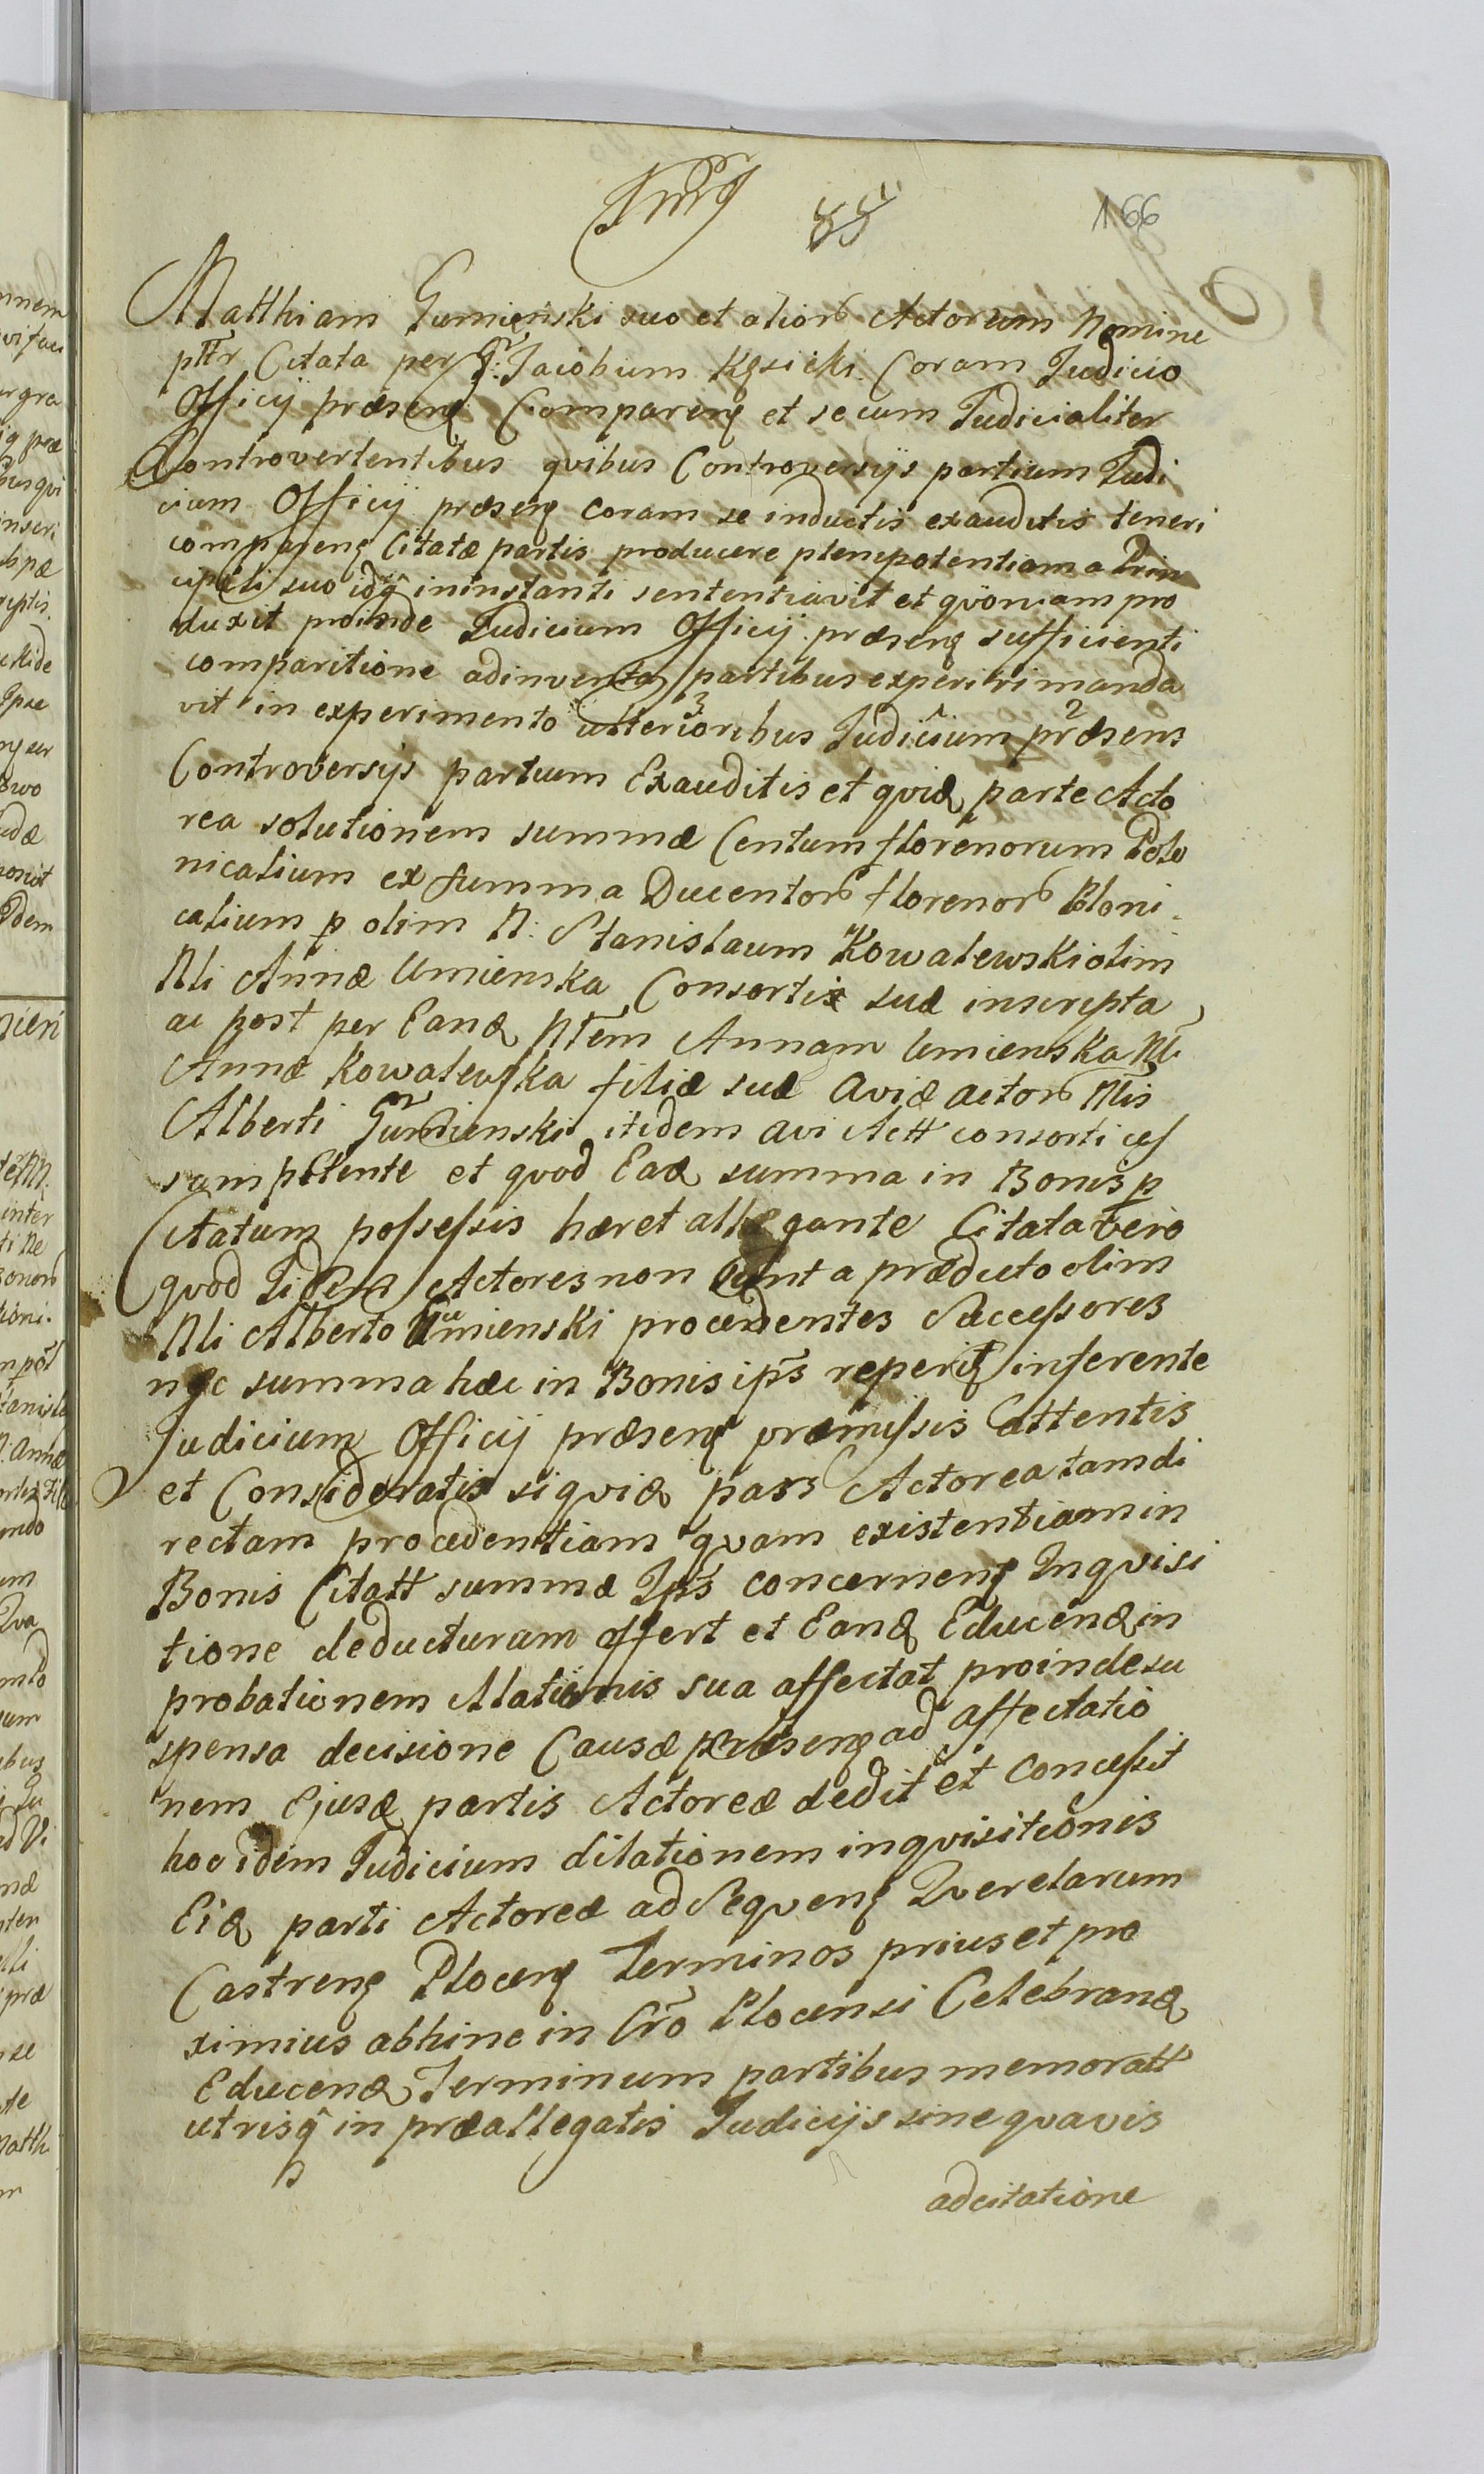 85
166
Matthiam Gumienski suo et alior Actorum Nomine
pttr Citata per G. Jacobum Kęsicki Coram Judicio
Officij præseng Compareng et secum Judicialiter
Controvertentibus qvibus Controversijs partium Judi
cium Officij præseng coram se inductis exauditis teneri
compareng Citatæ partis producere plenipotentiam a Prin
cipali suo idq in instanti sententiavit et qvoniam pro
duxit proinde Judicium Officij præseng sufficienti
comparitione adinventa partibus experiri manda
vit in experimento ulterioribus Judicium præsens
Controversijs partium Exauditis et qvia parte Acto
rea solutionem summæ Centum florenorum Polo
nicalium ex summa Ducentor florenor Ploni
calium p olim N. Stanislaum Kowalewski olim
Nli Annæ Umienska Consortis suæ inscripta
ac post per Eand Ntem Annam Umienska Nl.
Annæ Kowalewska filiæ suæ Aviæ actor Nlis
Alberti Gumienski itidem avi Actt consorti ces
sam petente et qvod Ead summa in Bonis p
Citatum possessis hæret allegante Citata vero
qvod Iidem Actores non sunt a prædicto olim
Nli Alberto Gumienski procedentes Successores
nec summa hæc in Bonis ips reperit inferente
Judicium Officij præseng præmissis attentis
et Consideratis siqvid pars Actorea tam di
rectam procedentiam qvam existentiam in
Bonis Citatt summæ Ips concerneng Inqvisi
tione deducturam offert et Eand Educend in
probationem Allationis sua affectat proinde su
spensa decisione Causæ præseng ad affectatio
nem Ejusd partis Actoreæ dedit et concessit
hoc idem Judicium dilationem inqvisitionis
Eid parti Actoreæ ad Seqveng Qverelarum
Castreng Ploceng Terminos prius et pro
ximius abhinc in Cro Plocensi Celebrand
Educend Terminum partibus memoratt
utrisq in præallegatis Judicijs sine qvavis
adcitatione